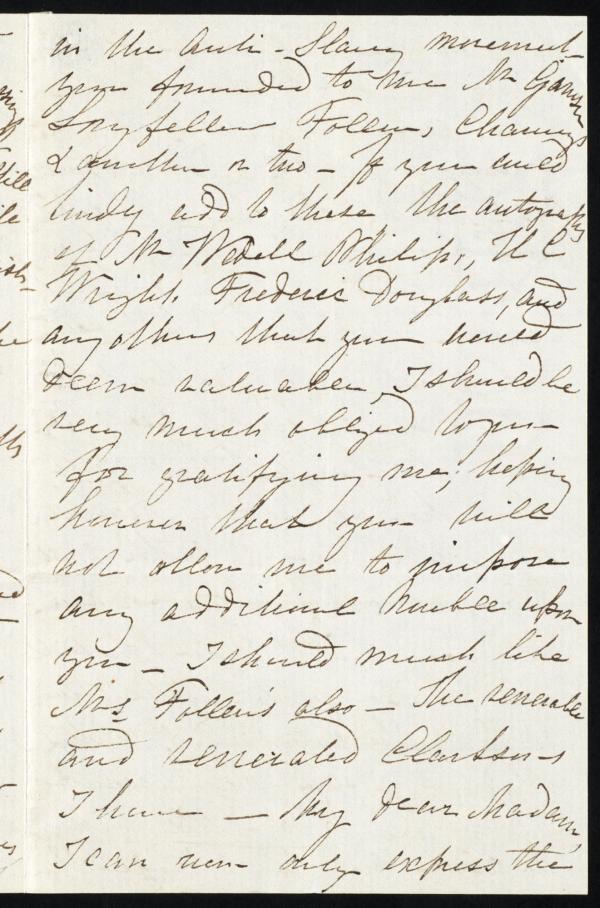 in the Anti-Slavery movement
you forwarded to me Mr Garrison
Longfellow Follen, Channings
& another or two - If you could
kindly add to these the autographs
of Mr Wendell Philips, H C
Wright, Frederic Douglass, and
any others that you would
deem valuable, I should be
very much obliged to you
for gratifying me; hoping
however that you will
not allow me to impose
any additional trouble upon
you - I should much like
Mrs Follen's also - The venerable
and venerated Clarkson's
I have - My dear Madam,
I can now only express the